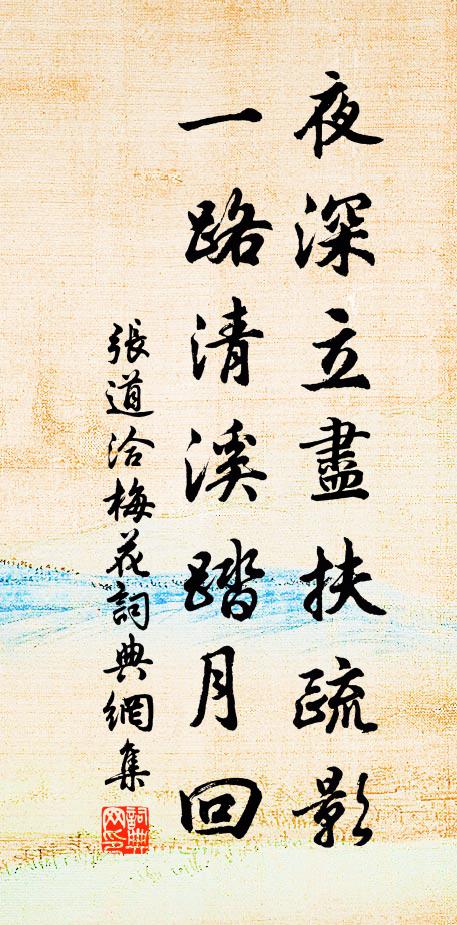 夜深立盡扶疏影
一路清溪踏月回
張道洽梅花詞典網集
詞典网印